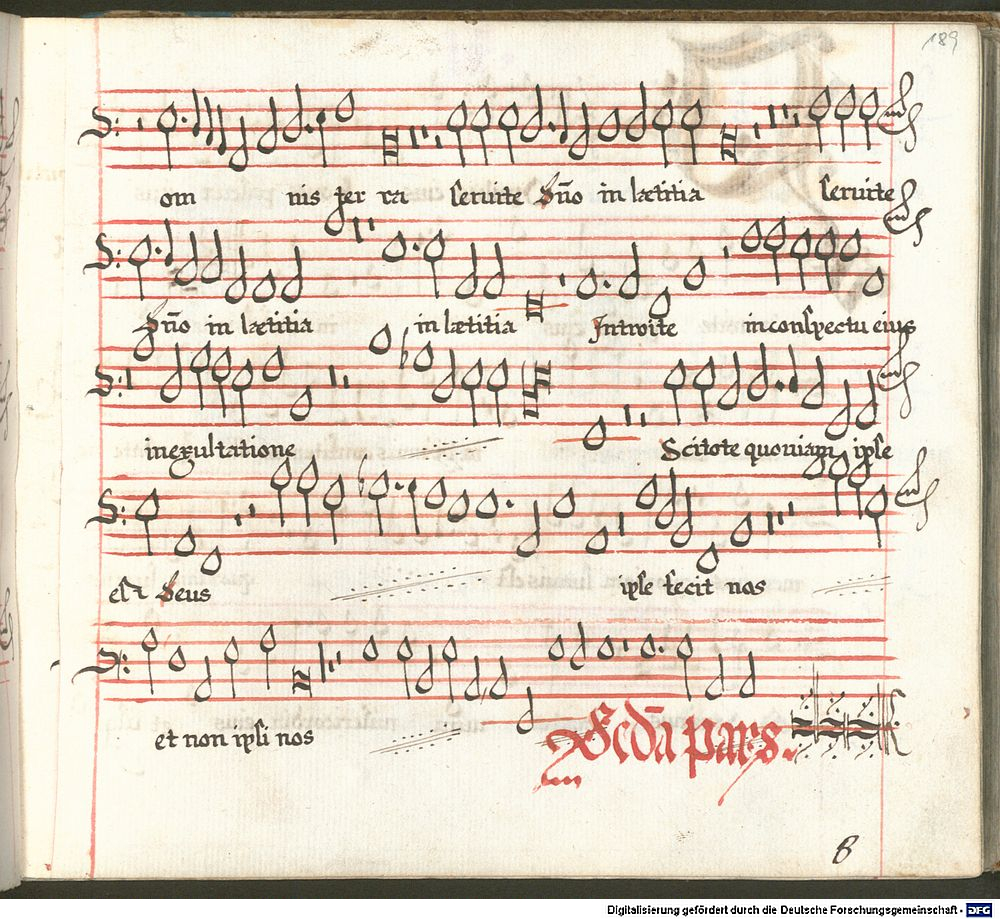 189
om nis ter ra seruite Dño in lætitia seruite
Dño in lætitia in lætitia Introite in conspectu eius
in exultatione Scitote quoniam ipse
est Deus ipse fecit nos
et non ipsi nos
Scdã pars
Digitalisierung gefördert durch die Deutsche Forschungsgemeinschaft - DFG